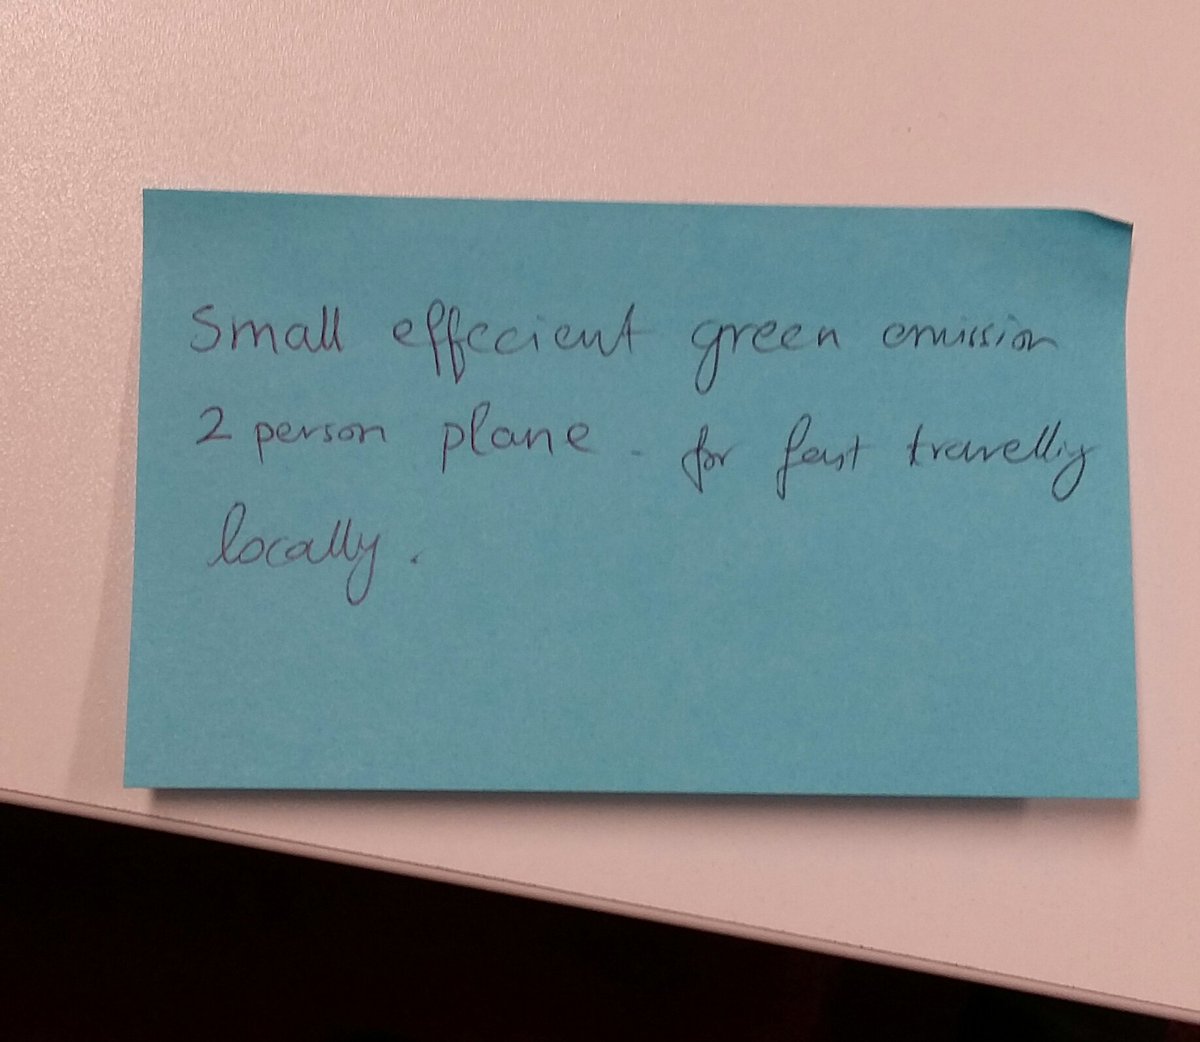 Small effecient green emission
2 person plane - for fast travelling
locally.